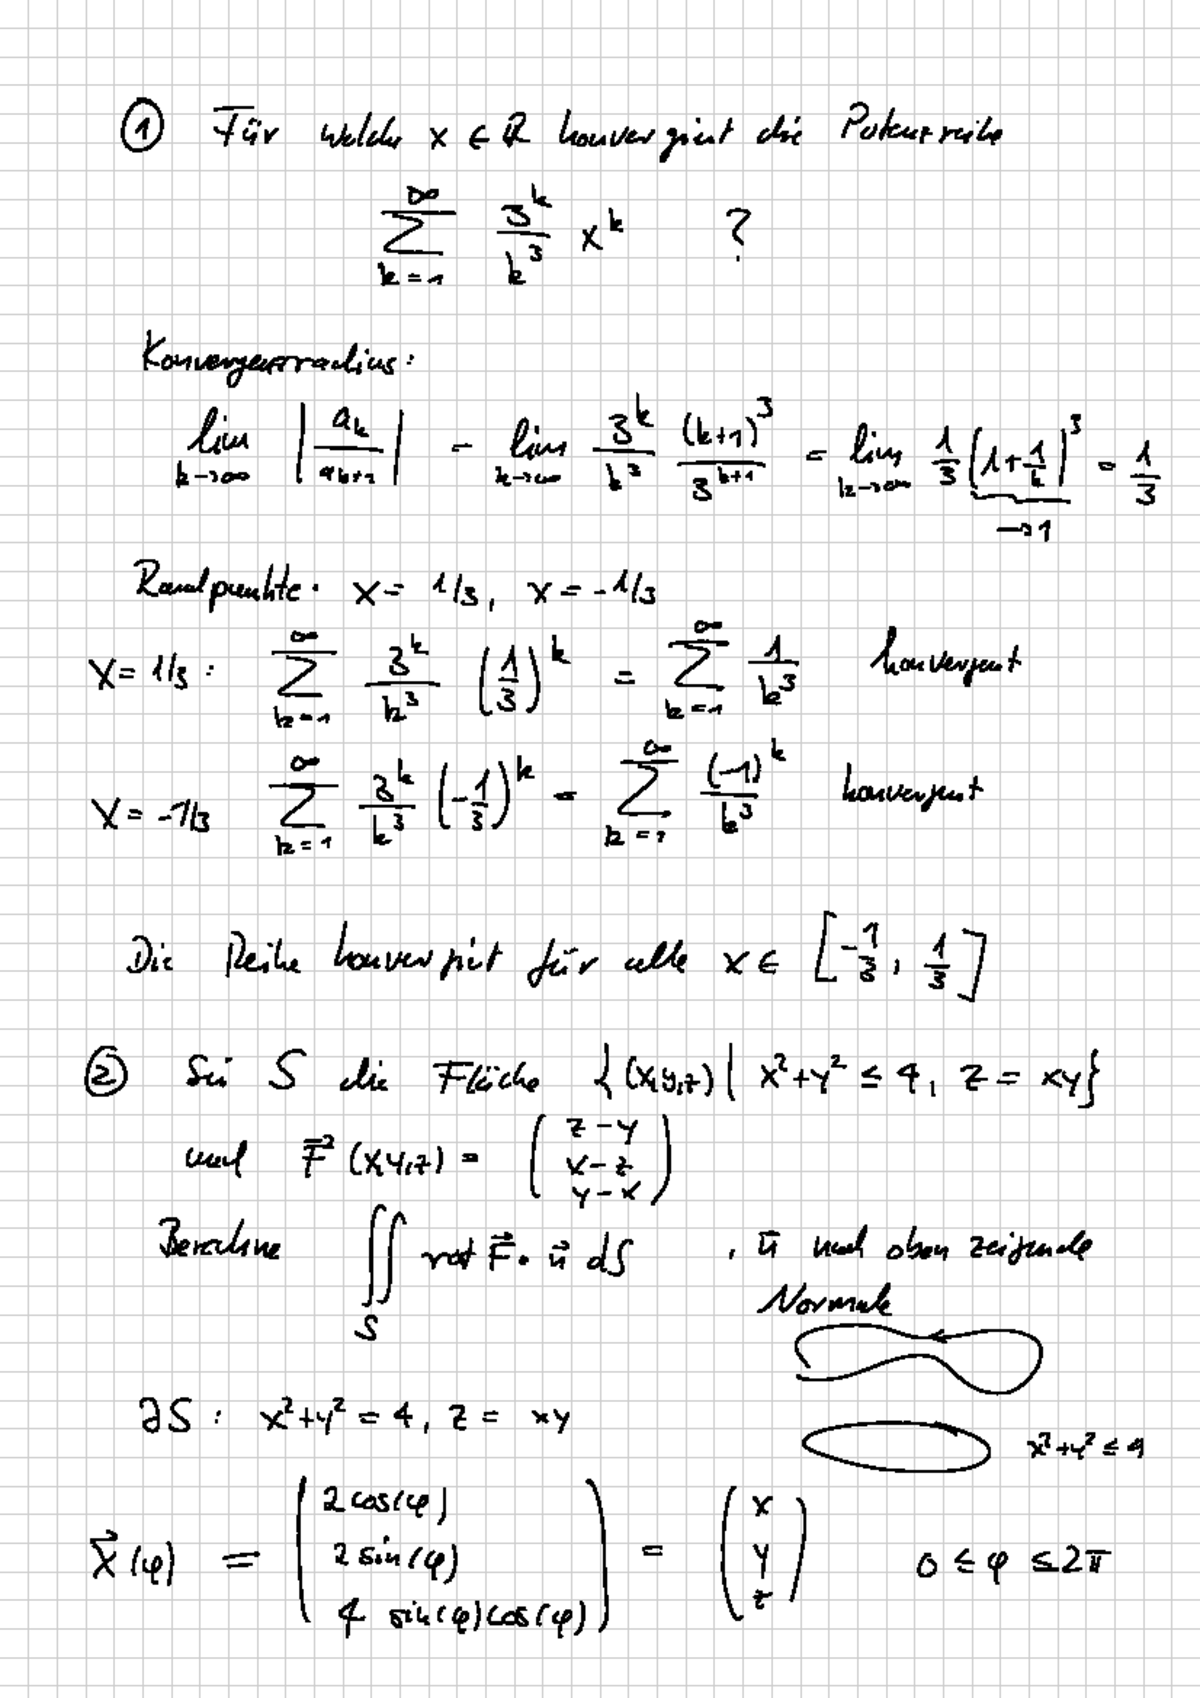 ① Für welche x ∈ ℝ konvergiert die Potenzreihe
∑_{k=1}^{∞} 3^k/k^3 x^k ?
Konvergenzradius:
lim_{k→∞} |a_k/a_{k+1}| = lim_{k→∞} 3^k/k^3 (k+1)^3/3^{k+1} = lim_{k→∞} 1/3 (1+1/k)^3 = 1/3
→1
Randpunkte: x = 1/3, x = -1/3
x = 1/3 : ∑_{k=1}^{∞} 3^k/k^3 (1/3)^k = ∑_{k=1}^{∞} 1/k^3 konvergent
x = -1/3 ∑_{k=1}^{∞} 3^k/k^3 (-1/3)^k = ∑_{k=1}^{∞} (-1)^k/k^3 konvergent
Die Reihe konvergiert für alle x ∈ [-1/3, 1/3]
② Sei S die Fläche {(x,y,z) | x²+y² ≤ 4, z = xy}
und F⃗(x,y,z) = (z-y, x-z, y-x)
Berechne ∬_S rot F⃗ • n⃗ dS , n⃗ nach oben zeigende
Normale
∂S : x²+y² = 4, z = xy
x²+y² ≤ 4
X⃗(φ) = (2cos(φ), 2sin(φ), 4 sin(φ)cos(φ)) = (x, y, z) 0 ≤ φ ≤ 2π